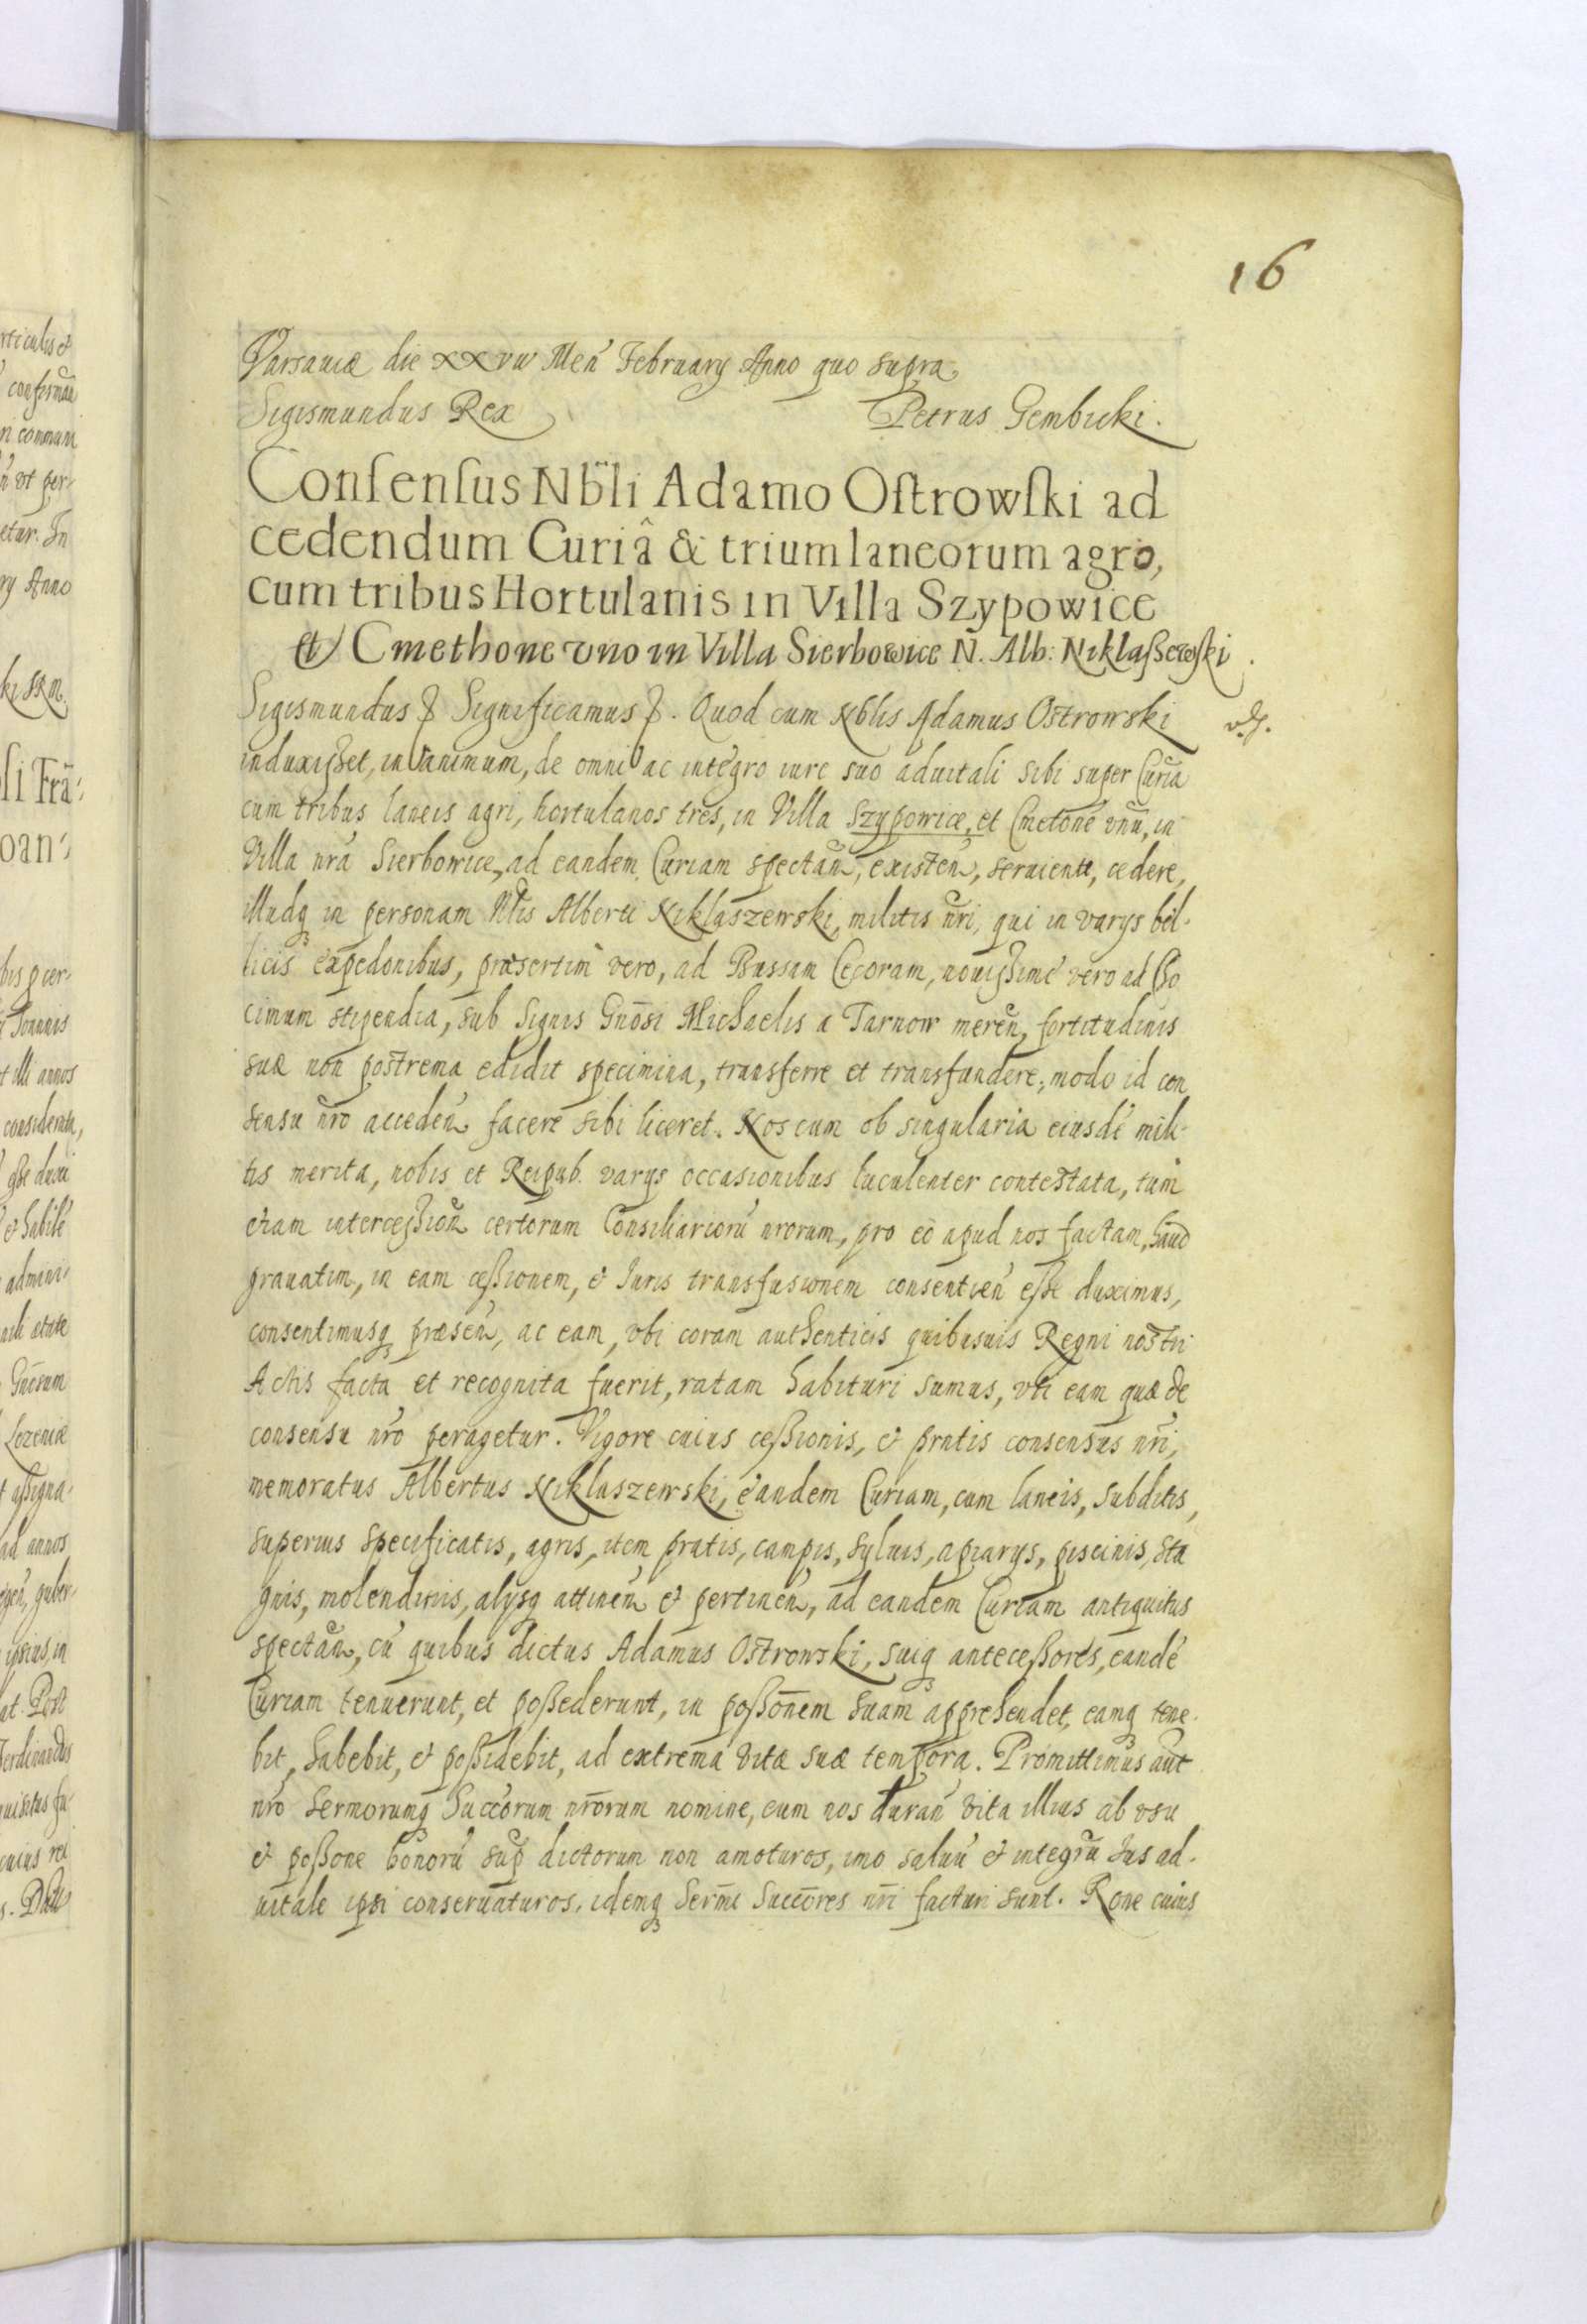 16
Varsauiæ die XXVII Men̄ February Anno quo supra
Sigismundus Rex Petrus Gembicki.
Consensus Nb̈li Adamo Ostrowski ad
cedendum Curiâ & trium laneorum agro,
cum tribus Hortulanis in Villa Szypowice
et Cmethone vno in Villa Sierbowice N. Alb: Niklaßewski.
Sigismundus Significamus. Quod cum Nblis Adamus Ostrowski
induxißet, in animum, de omni ac integro iure suo aduitali sibi super Curia
cum tribus laneis agri, hortulanos tres, in Villa Szypowice, et Cmetone vnū, in
Villa nrā Sierbowice, ad eandem Curiam spectan̄, existen̄, seruiente, cedere,
illudq in personam Nlis Alberti Niklaszewski, militis nri, qui in varys bel-
licis expedonibus, præsertim vero, ad Bussam Cecoram, nouißime vero ad Cho
cimum stipendia, sub Signis Gnōsi Michaelis a Tarnow meren̄, fortitudinis
suæ non postrema edidit specimina, transferre et transfundere, modo id con
sensu nro acceden̄ facere sibi liceret. Nos cum ob singularia eiusdē mili-
tis merita, nobis et Reipub. varys occasionibus luculenter contestata, tum
etiam intercession̄ certorum Consiliariorū nrorum, pro eo apud nos factam, haud
grauatim, in eam ceßionem, & Iuris transfusionem consentien̄ eße duximus,
consentimusq præsen̄, ac eam, vbi coram authenticis quibusuis Regni nostri
Actis facta et recognita fuerit, ratam habituri sumus, vti eam quæ de
consensu nro peragetur. Vigore cuius ceßionis, & prntis consensus nri,
memoratus Albertus Niklaszewski, eandem Curiam, cum laneis, subditis,
superius specificatis, agris, item pratis, campis, syluis, apiarys, piscinis, sta
gnis, molendinis, alysq attinen̄ & pertinen̄, ad eandem Curiam antiquitus
spectan̄, cū quibus dictus Adamus Ostrowski, suiq anteceßores, eandē
Curiam tenuerunt, et poßederunt, in poßōnem suam apprehendet, eamq tene-
bit, habebit, & poßidebit, ad extrema vitæ suæ tempora. Promittimus aut
nro Sermorumq Succorum nrōrum nomine, eum nos duran̄ vita illius ab vsu
& poßone bonorū sup dictorum non amoturos, imo saluū & integrū Ius ad-
uitale ipsi conseruaturos, idemq Serm̄i Succōres nr̄i facturi sunt. Rone cuius